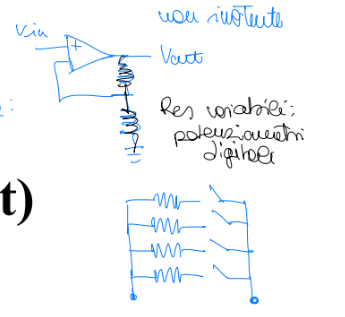 non invertente
Vin
+
-
Vout
Res variabili:
potenziometri
digitali
t)